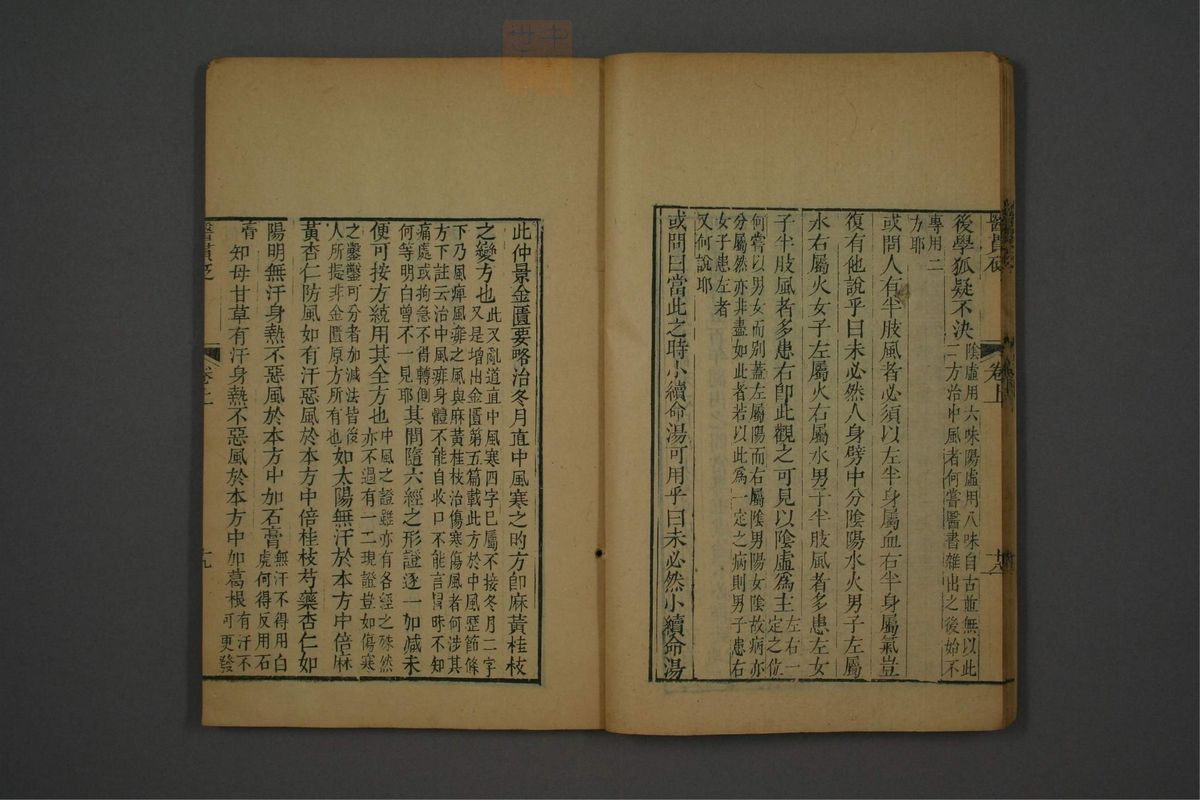 醫貫砭
卷上
後學狐疑不決陰虛用六味陽虛用八味自古並無以此
二方治中風者何嘗醫書雜出之後始不
專用二
方耶
或問人有半肢風者必須以左半身屬血右半身屬氣豈
復有他說乎曰未必然人身劈中分陰陽水火男子左屬
水右屬火女子左屬火右屬水男子半肢風者多患左女
子半肢風者多患右卽此觀之可見以陰虛爲主左右一
定之位
何嘗以男女而别蓋左屬陽而右屬陰男陽女陰故病亦
分屬然亦非盡如此者若以此爲一定之病則男子患右
女子患左者
又何說耶
或問曰當此之時小續命湯可用乎曰未必然小續命湯
此仲景金匱要略治冬月直中風寒之的方卽麻黃桂枝
之變方也此又亂道直中風寒四字已屬不接冬月二字
又是增出金匱第五篇載此方於中風歷節條
下乃風痺風痱之風與麻黃桂枝治傷寒傷風者何涉其
方下註云治中風痱身體不能自收口不能言冒昧不知
痛處或拘急不得轉側
何等明白曾不一見耶其間隨六經之形證逐一加減未
便可按方統用其全方也中風之證雖亦有各經之殊然
亦不過有一二現證豈如傷寒
之鑿鑿可分者加減法皆後
人所授非金匱原方所有也如太陽無汗於本方中倍麻
黃杏仁防風如有汗惡風於本方中倍桂枝芍藥杏仁如
陽明無汗身熱不惡風於本方中加石膏無汗不得用白
虎何得反用石
膏知母甘草有汗身熱不惡風於本方中加葛根有汗不
可更發
醫貫砭
卷上
十九